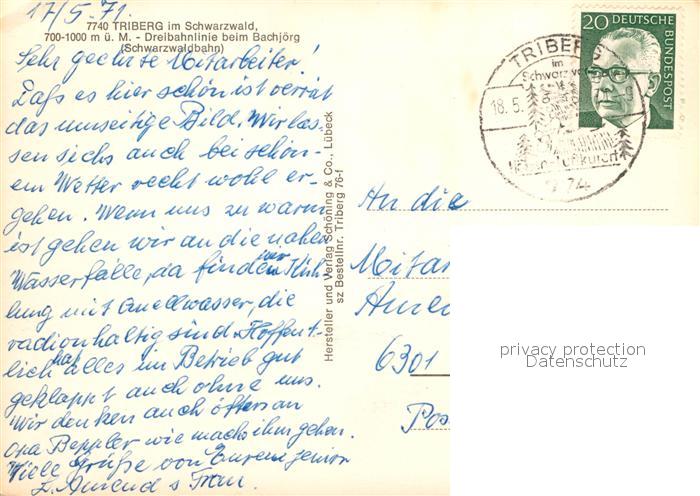 17/5.71.
7740 TRIBERG im Schwarzwald,
700-1000 m ü. M. - Dreibahnlinie beim Bachjörg
(Schwarzwaldbahn)
Sehr geehrte Mitarbeiter!
Daß es hier schön ist verrät
das umseitige Bild. Wir las-
sen sichs auch bei schön-
em Wetter recht wohl er-
gehen. Wenn uns zu warm
ist gehen wir an die nahen
Wasserfälle, da finden wir Küh-
lung mit Quellwasser, die
radionhaltig sind. Hoffent-
lich hat alles im Betrieb gut
geklappt auch ohne uns.
Wir denken auch öfters an
Opa Beppler wie
Viele Grüße von Eurem senior
L. Amend u Frau
Hersteller und Verlag Schöning & Co., Lübeck
sz Bestellnr. Triberg 76-f
20 DEUTSCHE
BUNDESPOST
TRIBERG
im
18.5.
An die
Mitar
Amend
6301
Pos
privacy protection
Datenschutz